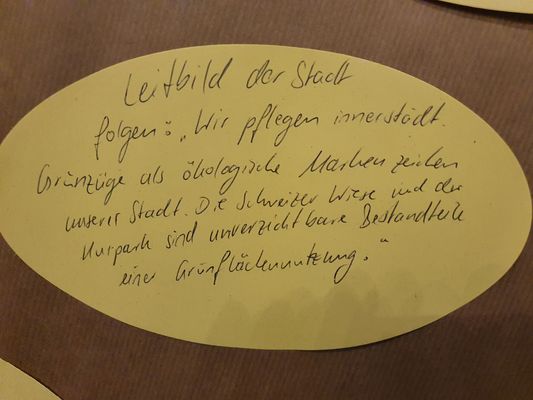 Leitbild der Stadt
folgen: „Wir pflegen innerstädt.
Grünzüge als ökologische Markenzeichen
unserer Stadt. Die Schweizer Wiese und der
Kurpark sind unverzichtbare Bestandteile
einer Grünflächennutzung."